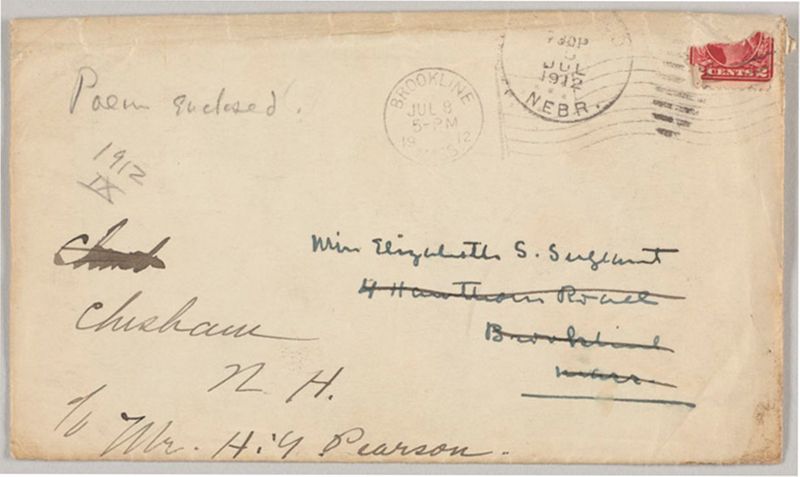 Poem enclosed.
BROOKLINE
JUL 8
5-PM
1912
730P
JUL
1912
NEBR.
CENTS 2
1912
IX
Miss Elizabeth S. Sergeant
4 Hawthorn Road
Brookline
Mass.
Chesham
N. H.
c/o Mr. H. G. Pearson.